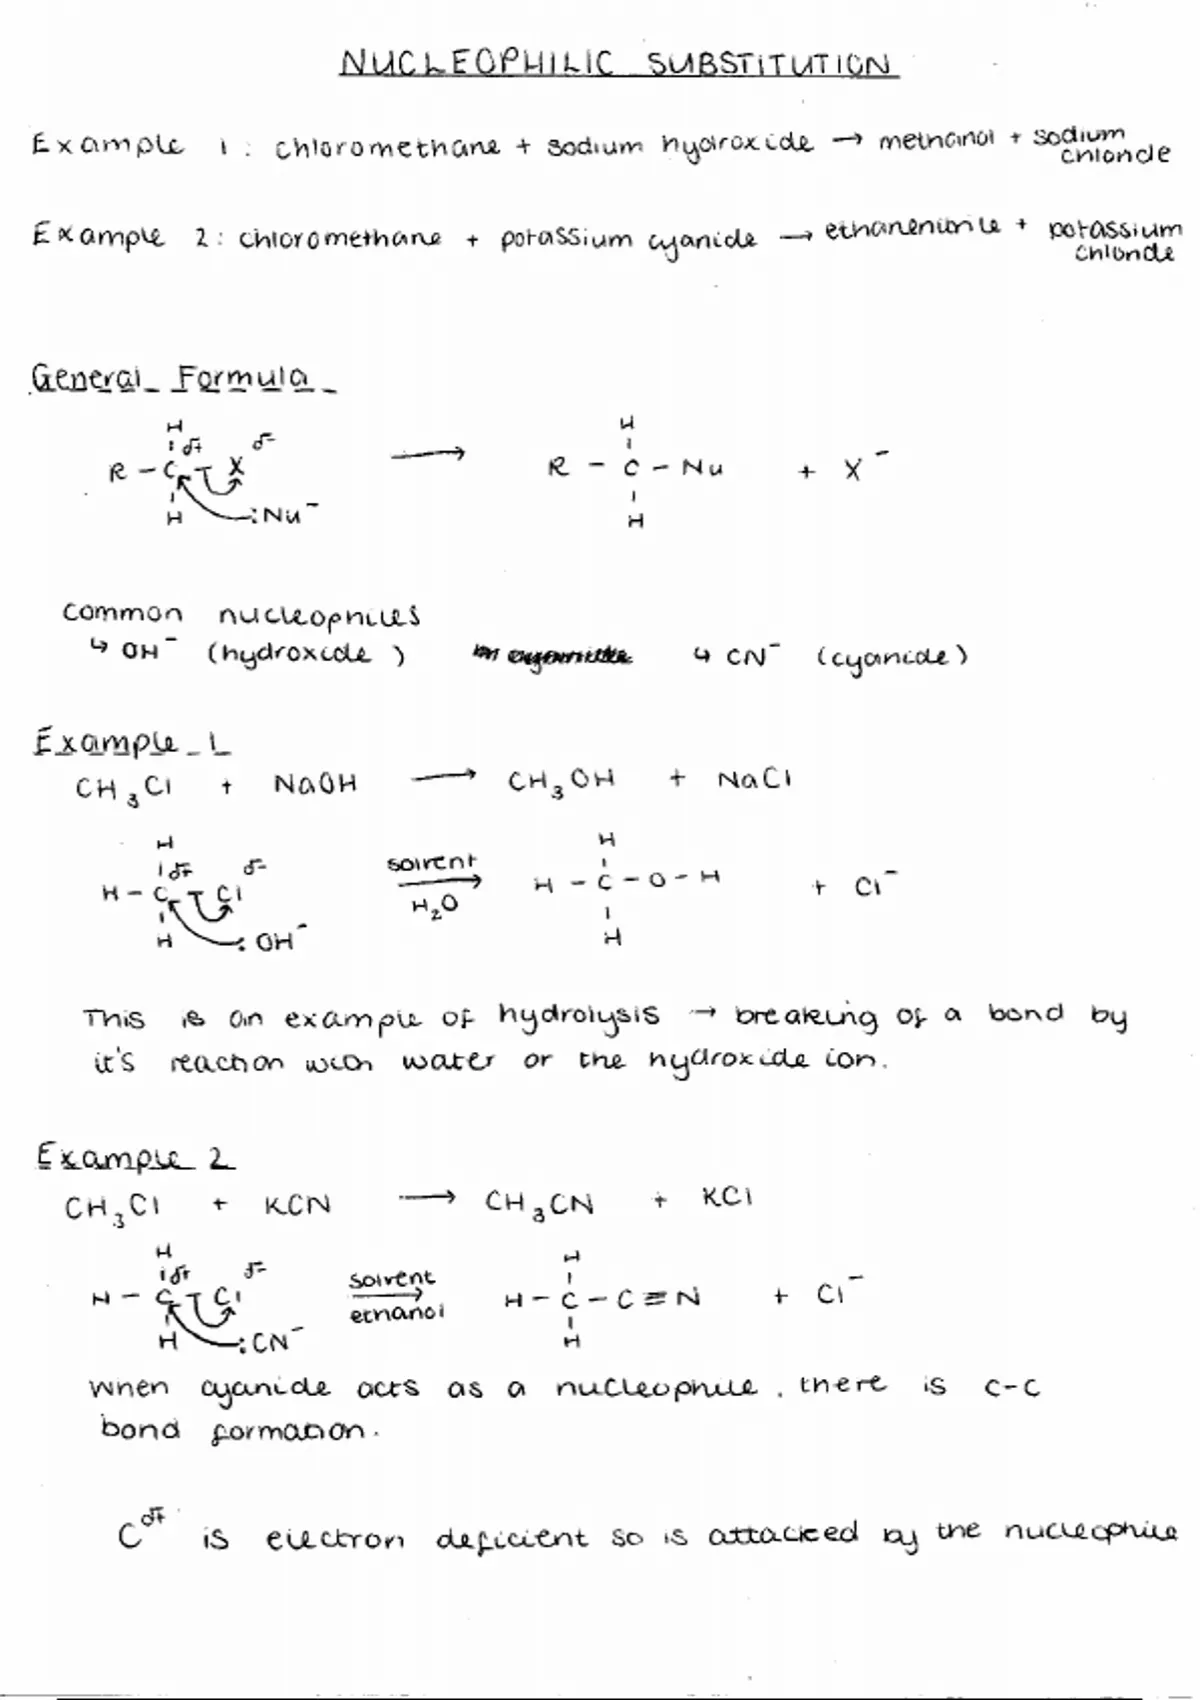 NUCLEOPHILIC SUBSTITUTION
Example 1 : chloromethane + sodium hydroxide → methanol + sodium chloride
Example 2 : chloromethane + potassium cyanide → ethanenitrile + potassium chloride
General Formula
H
δ+ δ-
R - C - X → R - C - Nu + X⁻
H :Nu⁻ H
common nucleophiles
↳ OH⁻ (hydroxide) ↳ CN⁻ (cyanide)
Example 1
CH₃Cl + NaOH → CH₃OH + NaCl
H H
δ+ δ- solvent
H - C - Cl → H - C - O - H + Cl⁻
H₂O
H :OH⁻ H
This is an example of hydrolysis → breaking of a bond by
it's reaction with water or the hydroxide ion.
Example 2
CH₃Cl + KCN → CH₃CN + KCl
H H
δ+ δ- solvent
H - C - Cl → H - C - C ≡ N + Cl⁻
ethanol
H :CN⁻ H
When cyanide acts as a nucleophile, there is C-C
bond formation.
C^δ+ is electron deficient so is attacked by the nucleophile